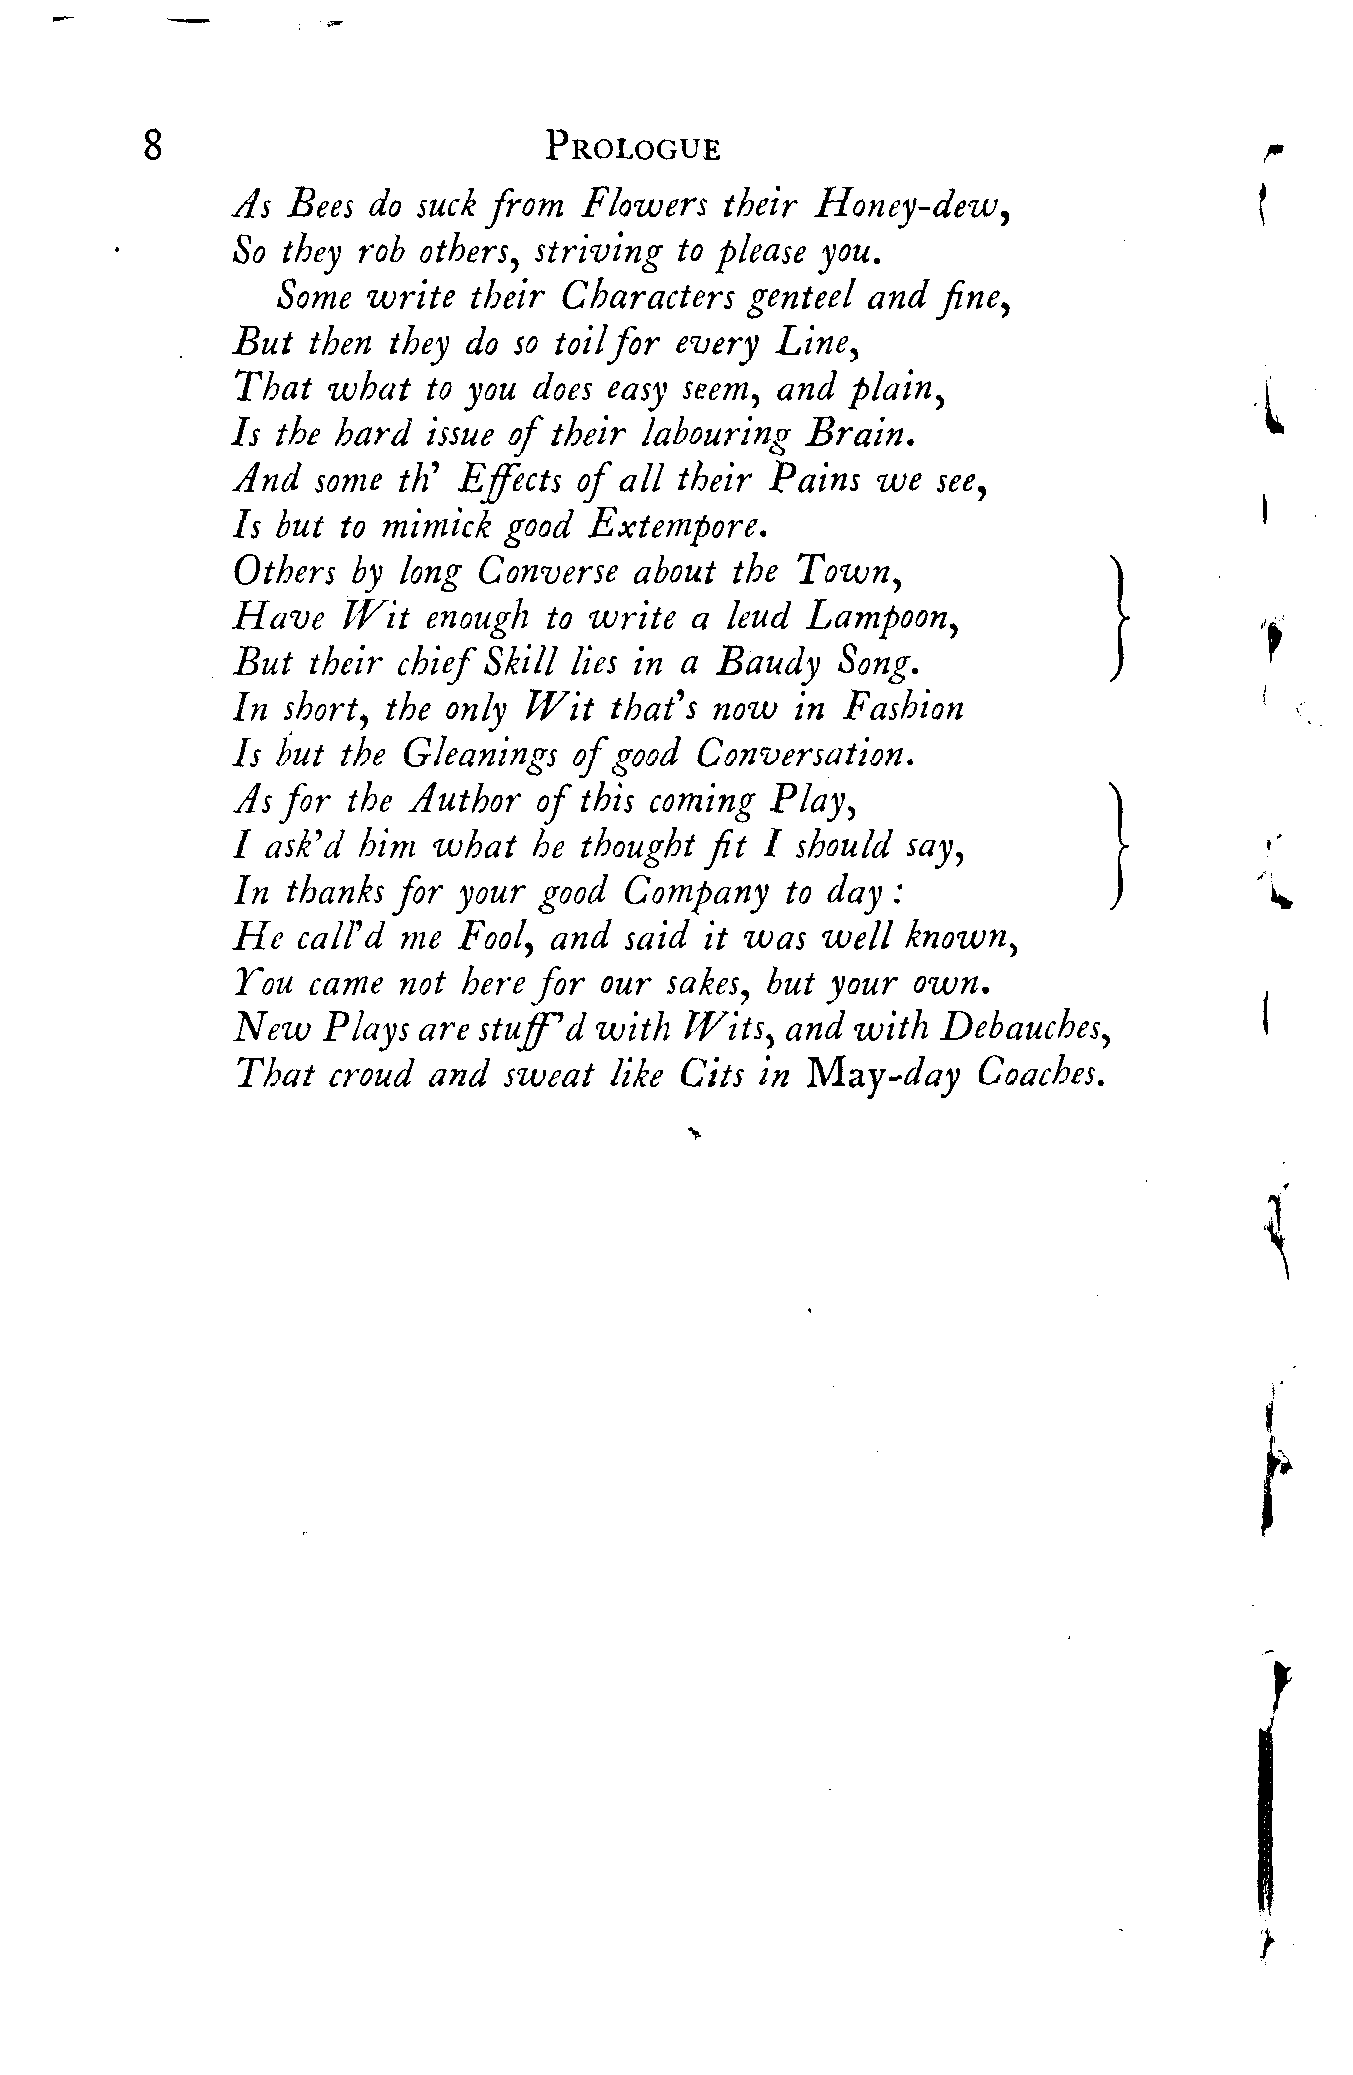 8 PROLOGUE
As Bees do suck from Flowers their Honey-dew,
So they rob others, striving to please you.
Some write their Characters genteel and fine,
But then they do so toil for every Line,
That what to you does easy seem, and plain,
Is the hard issue of their labouring Brain.
And some th' Effects of all their Pains we see,
Is but to mimick good Extempore.
Others by long Converse about the Town,
Have Wit enough to write a leud Lampoon,
But their chief Skill lies in a Baudy Song.
In short, the only Wit that's now in Fashion
Is but the Gleanings of good Conversation.
As for the Author of this coming Play,
I ask'd him what he thought fit I should say,
In thanks for your good Company to day :
He call'd me Fool, and said it was well known,
You came not here for our sakes, but your own.
New Plays are stuff'd with Wits, and with Debauches,
That croud and sweat like Cits in May-day Coaches.